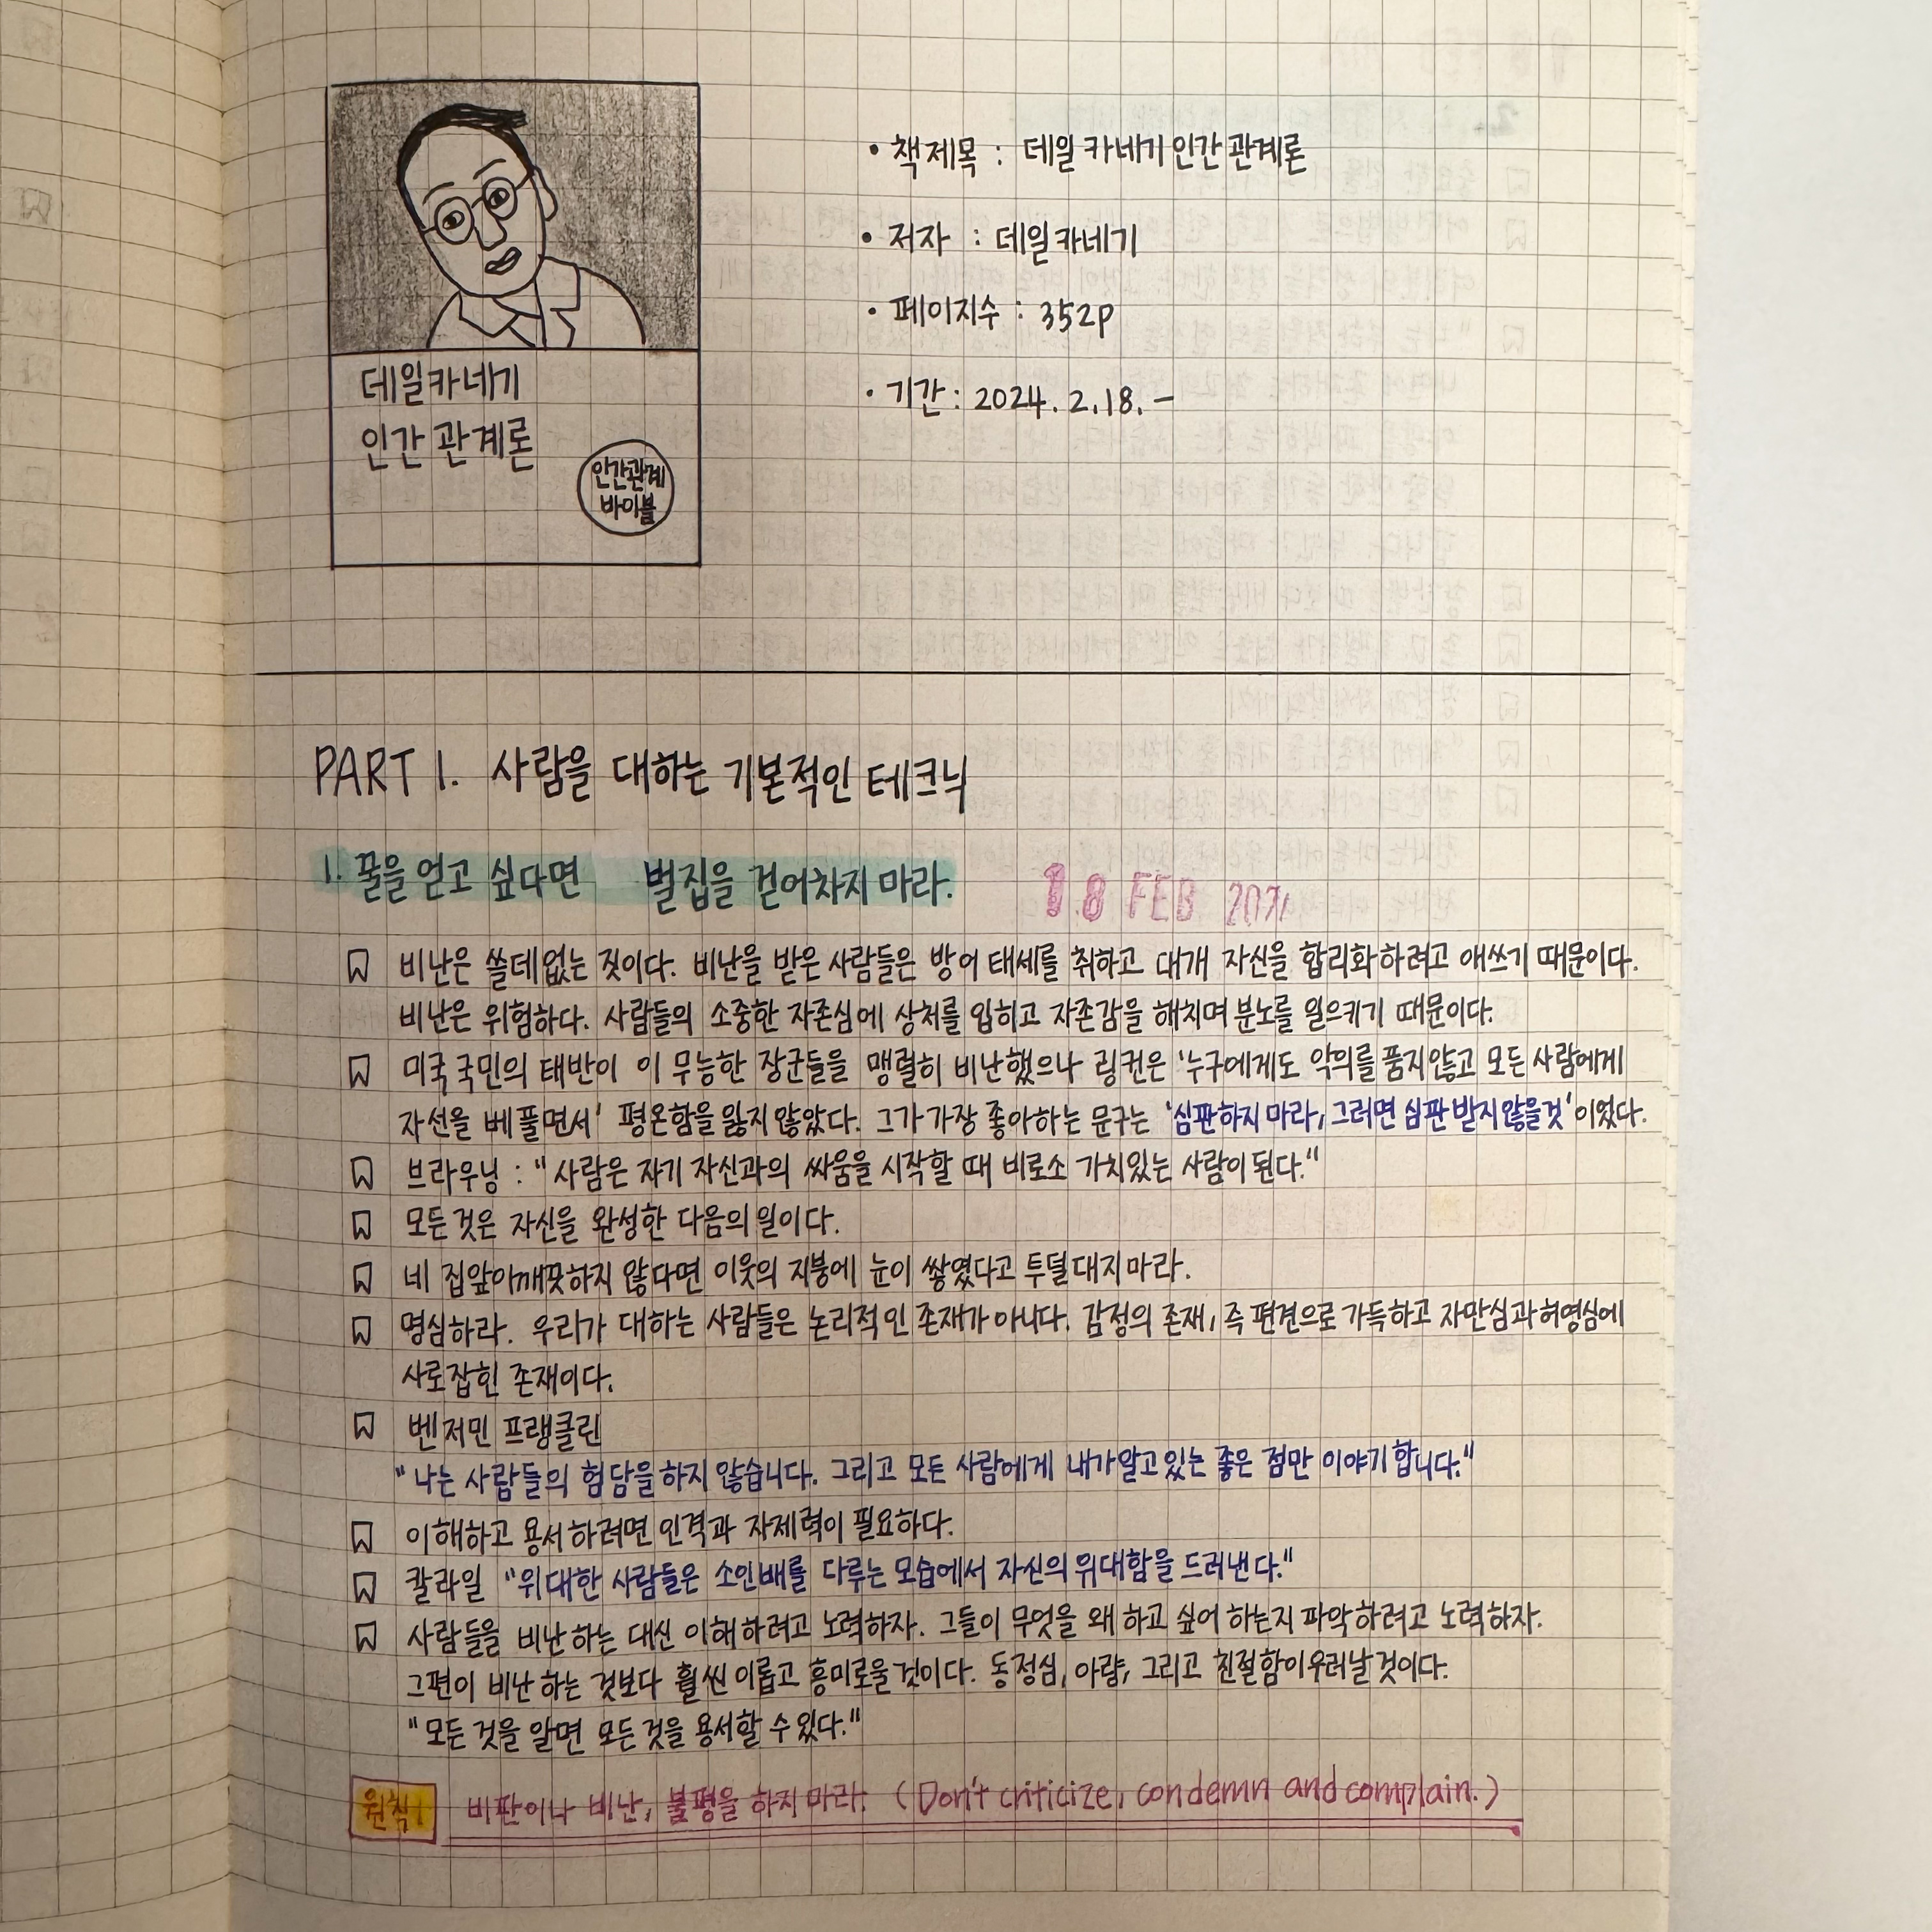 데일 카네기
인간 관계론
인간관계
바이블
• 책 제목 : 데일 카네기 인간 관계론
• 저자 : 데일 카네기
• 페이지수 : 352p
• 기간 : 2024. 2. 18. -
PART 1. 사람을 대하는 기본적인 테크닉
1. 꿀을 얻고 싶다면 벌집을 걷어차지 마라.
18 FEB
비난은 쓸데없는 짓이다. 비난을 받은 사람들은 방어 태세를 취하고 대개 자신을 합리화하려고 애쓰기 때문이다.
비난은 위험하다. 사람들의 소중한 자존심에 상처를 입히고 자존감을 해치며 분노를 일으키기 때문이다.
미국 국민의 태반이 이 무능한 장군들을 맹렬히 비난했으나 링컨은 '누구에게도 악의를 품지않고 모든 사람에게
자선을 베풀면서' 평온함을 잃지 않았다. 그가 가장 좋아하는 문구는 '심판하지 마라, 그러면 심판 받지 않을것'이었다.
브라우닝 : "사람은 자기 자신과의 싸움을 시작할 때 비로소 가치있는 사람이 된다."
모든 것은 자신을 완성한 다음의 일이다.
네 집앞이 깨끗하지 않다면 이웃의 지붕에 눈이 쌓였다고 투덜대지 마라.
명심하라. 우리가 대하는 사람들은 논리적인 존재가 아니다. 감정의 존재, 즉 편견으로 가득하고 자만심과 허영심에
사로잡힌 존재이다.
벤저민 프랭클린
"나는 사람들의 험담을 하지 않습니다. 그리고 모든 사람에게 내가 알고 있는 좋은 점만 이야기 합니다."
이해하고 용서하려면 인격과 자제력이 필요하다.
칼라일 "위대한 사람들은 소인배를 다루는 모습에서 자신의 위대함을 드러낸다."
사람들을 비난하는 대신 이해하려고 노력하자. 그들이 무엇을 왜 하고 싶어 하는지 파악하려고 노력하자.
그편이 비난 하는 것보다 훨씬 이롭고 흥미로울 것이다. 동정심, 아량, 그리고 친절함이 우러날 것이다.
"모든 것을 알면 모든 것을 용서할 수 있다."
원칙1 비판이나 비난, 불평을 하지 마라. (Don't criticize, condemn and complain.)